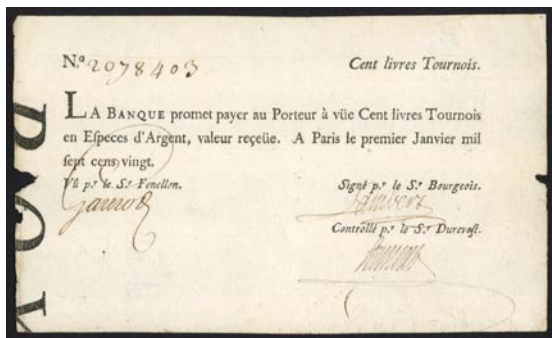 N.º 2078403 Cent livres Tournois.
LA BANQUE promet payer au Porteur à vüe Cent livres Tournois
en Especes d'Argent, valeur reçeüe. A Paris le premier Janvier mil
sept cens vingt.
Vû p.r le S.r Fenellon. Signé p.r le S.r Bourgeois.
Controllé p.r le S.r Durevest.